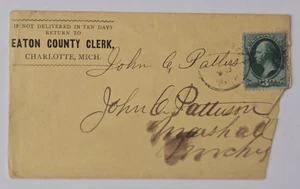 IF NOT DELIVERED IN TEN DAYS
RETURN TO
EATON COUNTY CLERK,
CHARLOTTE, MICH.
John C Pattison
John C Pattison
Marshall
Mich